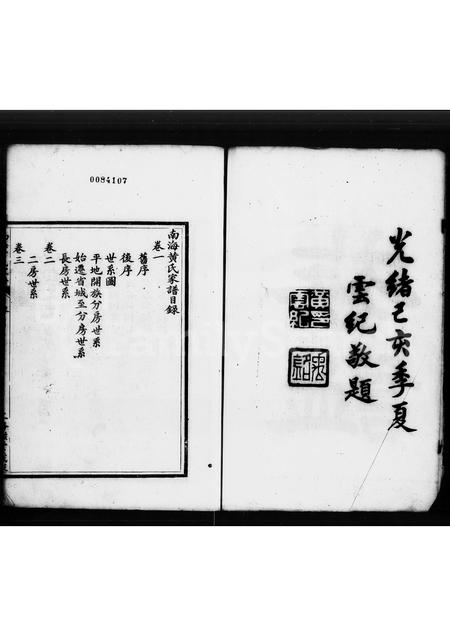 光緒己亥季夏
雲紀敬題
黃
雲紀
0084107
南海黃氏家譜目錄
卷一
舊序
後序
世系圖
平地開族分房世系
始遷省城至分房世系
長房世系
卷二
二房世系
卷三